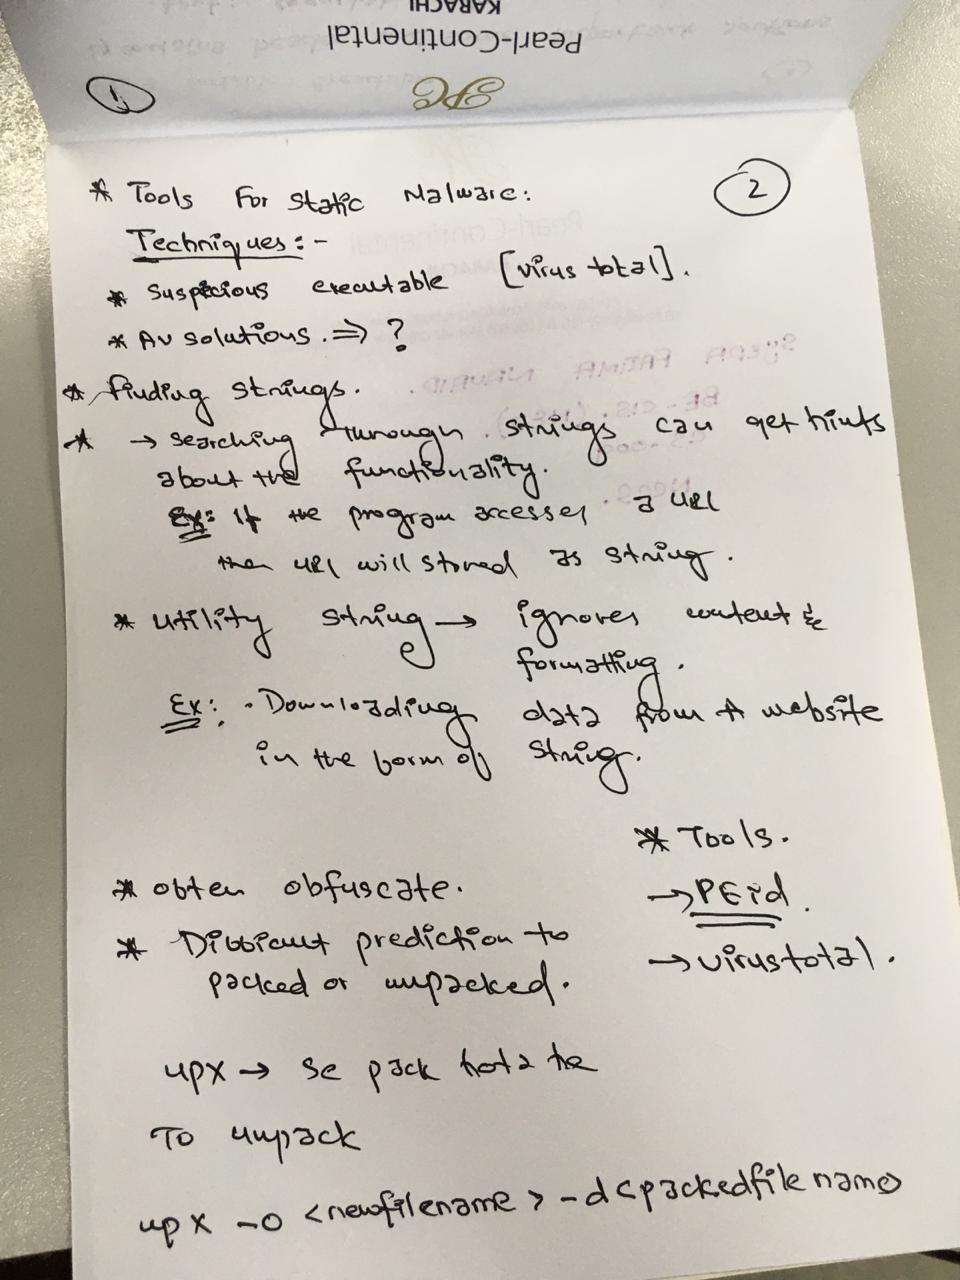 KARACHI
Pearl-Continental
PC
1
2
* Tools For Static Malware:
Techniques:-
* Suspicious executable [virus total].
* AV solutions. ⇒ ?
* finding strings.
* → searching through strings can get hints
about the functionality.
Ex: If the program accesses a URL
then URL will stored as string.
* utility string → ignores content &
formatting.
Ex: . Downloading data from A website
in the form of string.
* Tools.
* often obfuscate.
→ PEid.
* Difficult prediction to
packed or unpacked.
→ virustotal.
upx → se pack hota he
To unpack
upx -o <newfilename> -d <packedfilename>